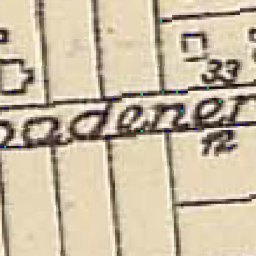 33
oadener
12